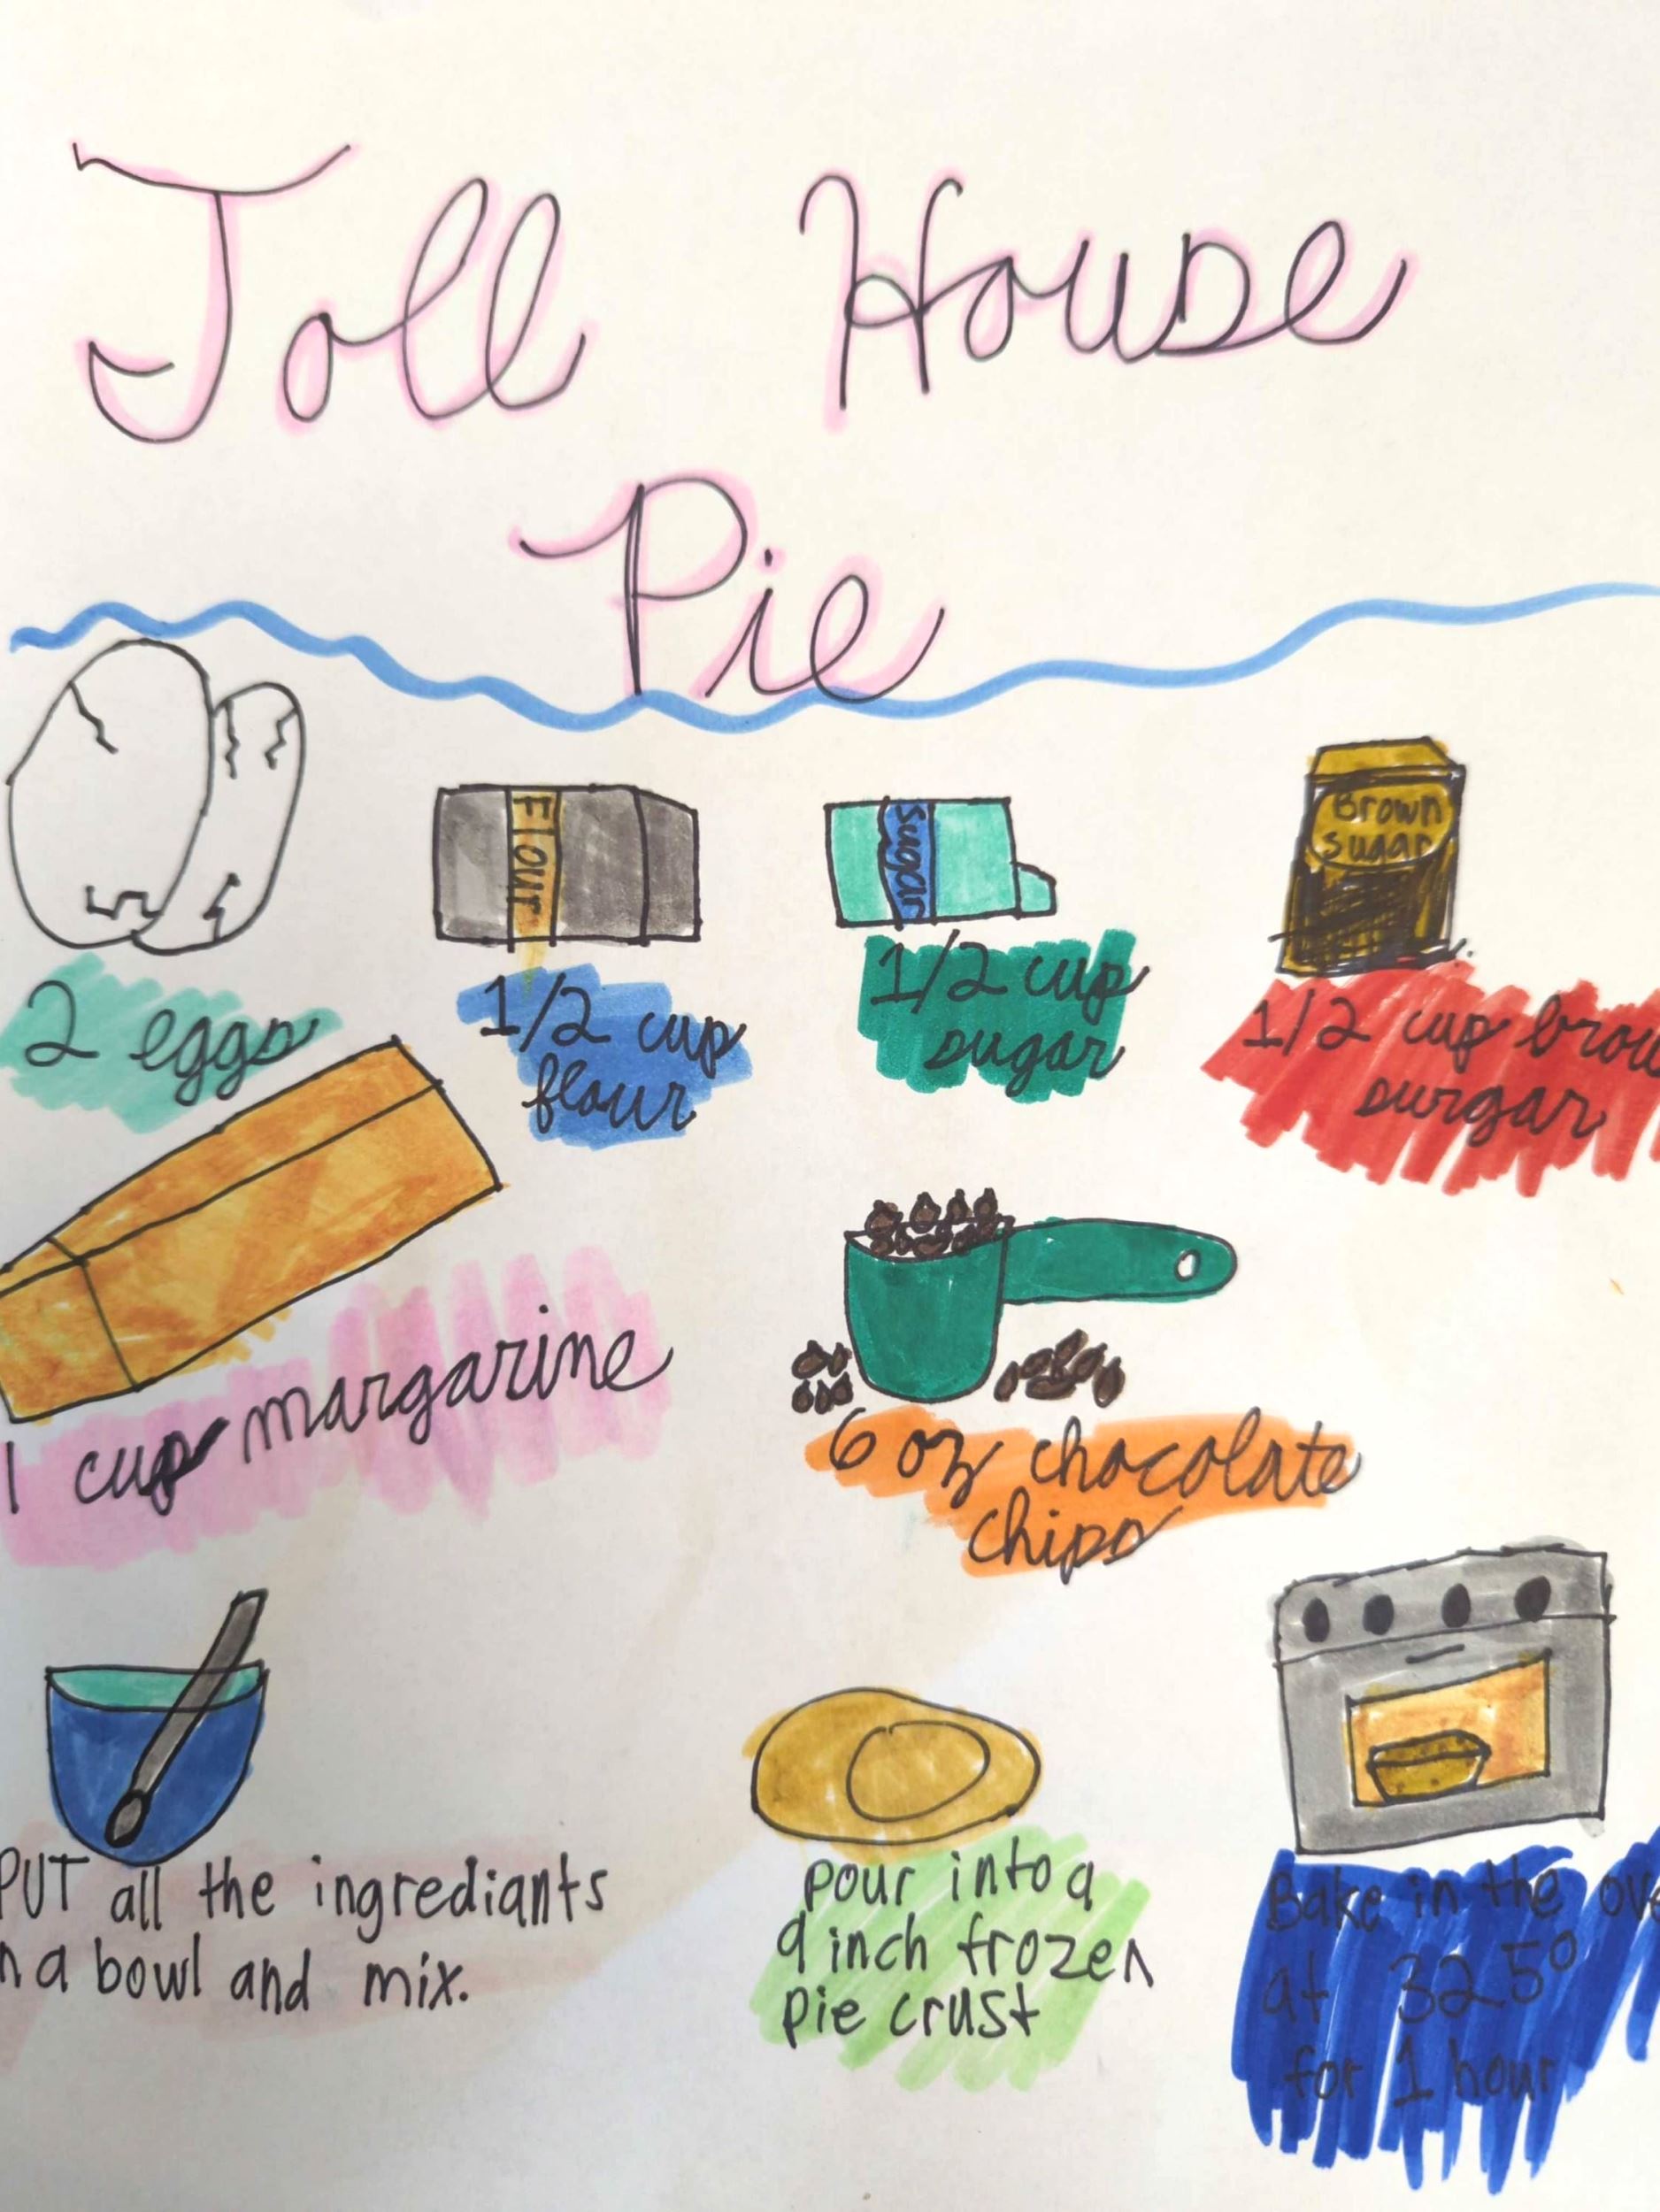 Toll House
Pie
Flour
Sugar
Brown
sugar
2 eggs
1/2 cup
flour
1/2 cup
sugar
1/2 cup brow
surgar
1 cup margarine
6 oz chocolate
chips
PUT all the ingrediants
n a bowl and mix.
pour into a
9 inch frozen
pie crust
Bake in the ove
at 325°
for 1 hour